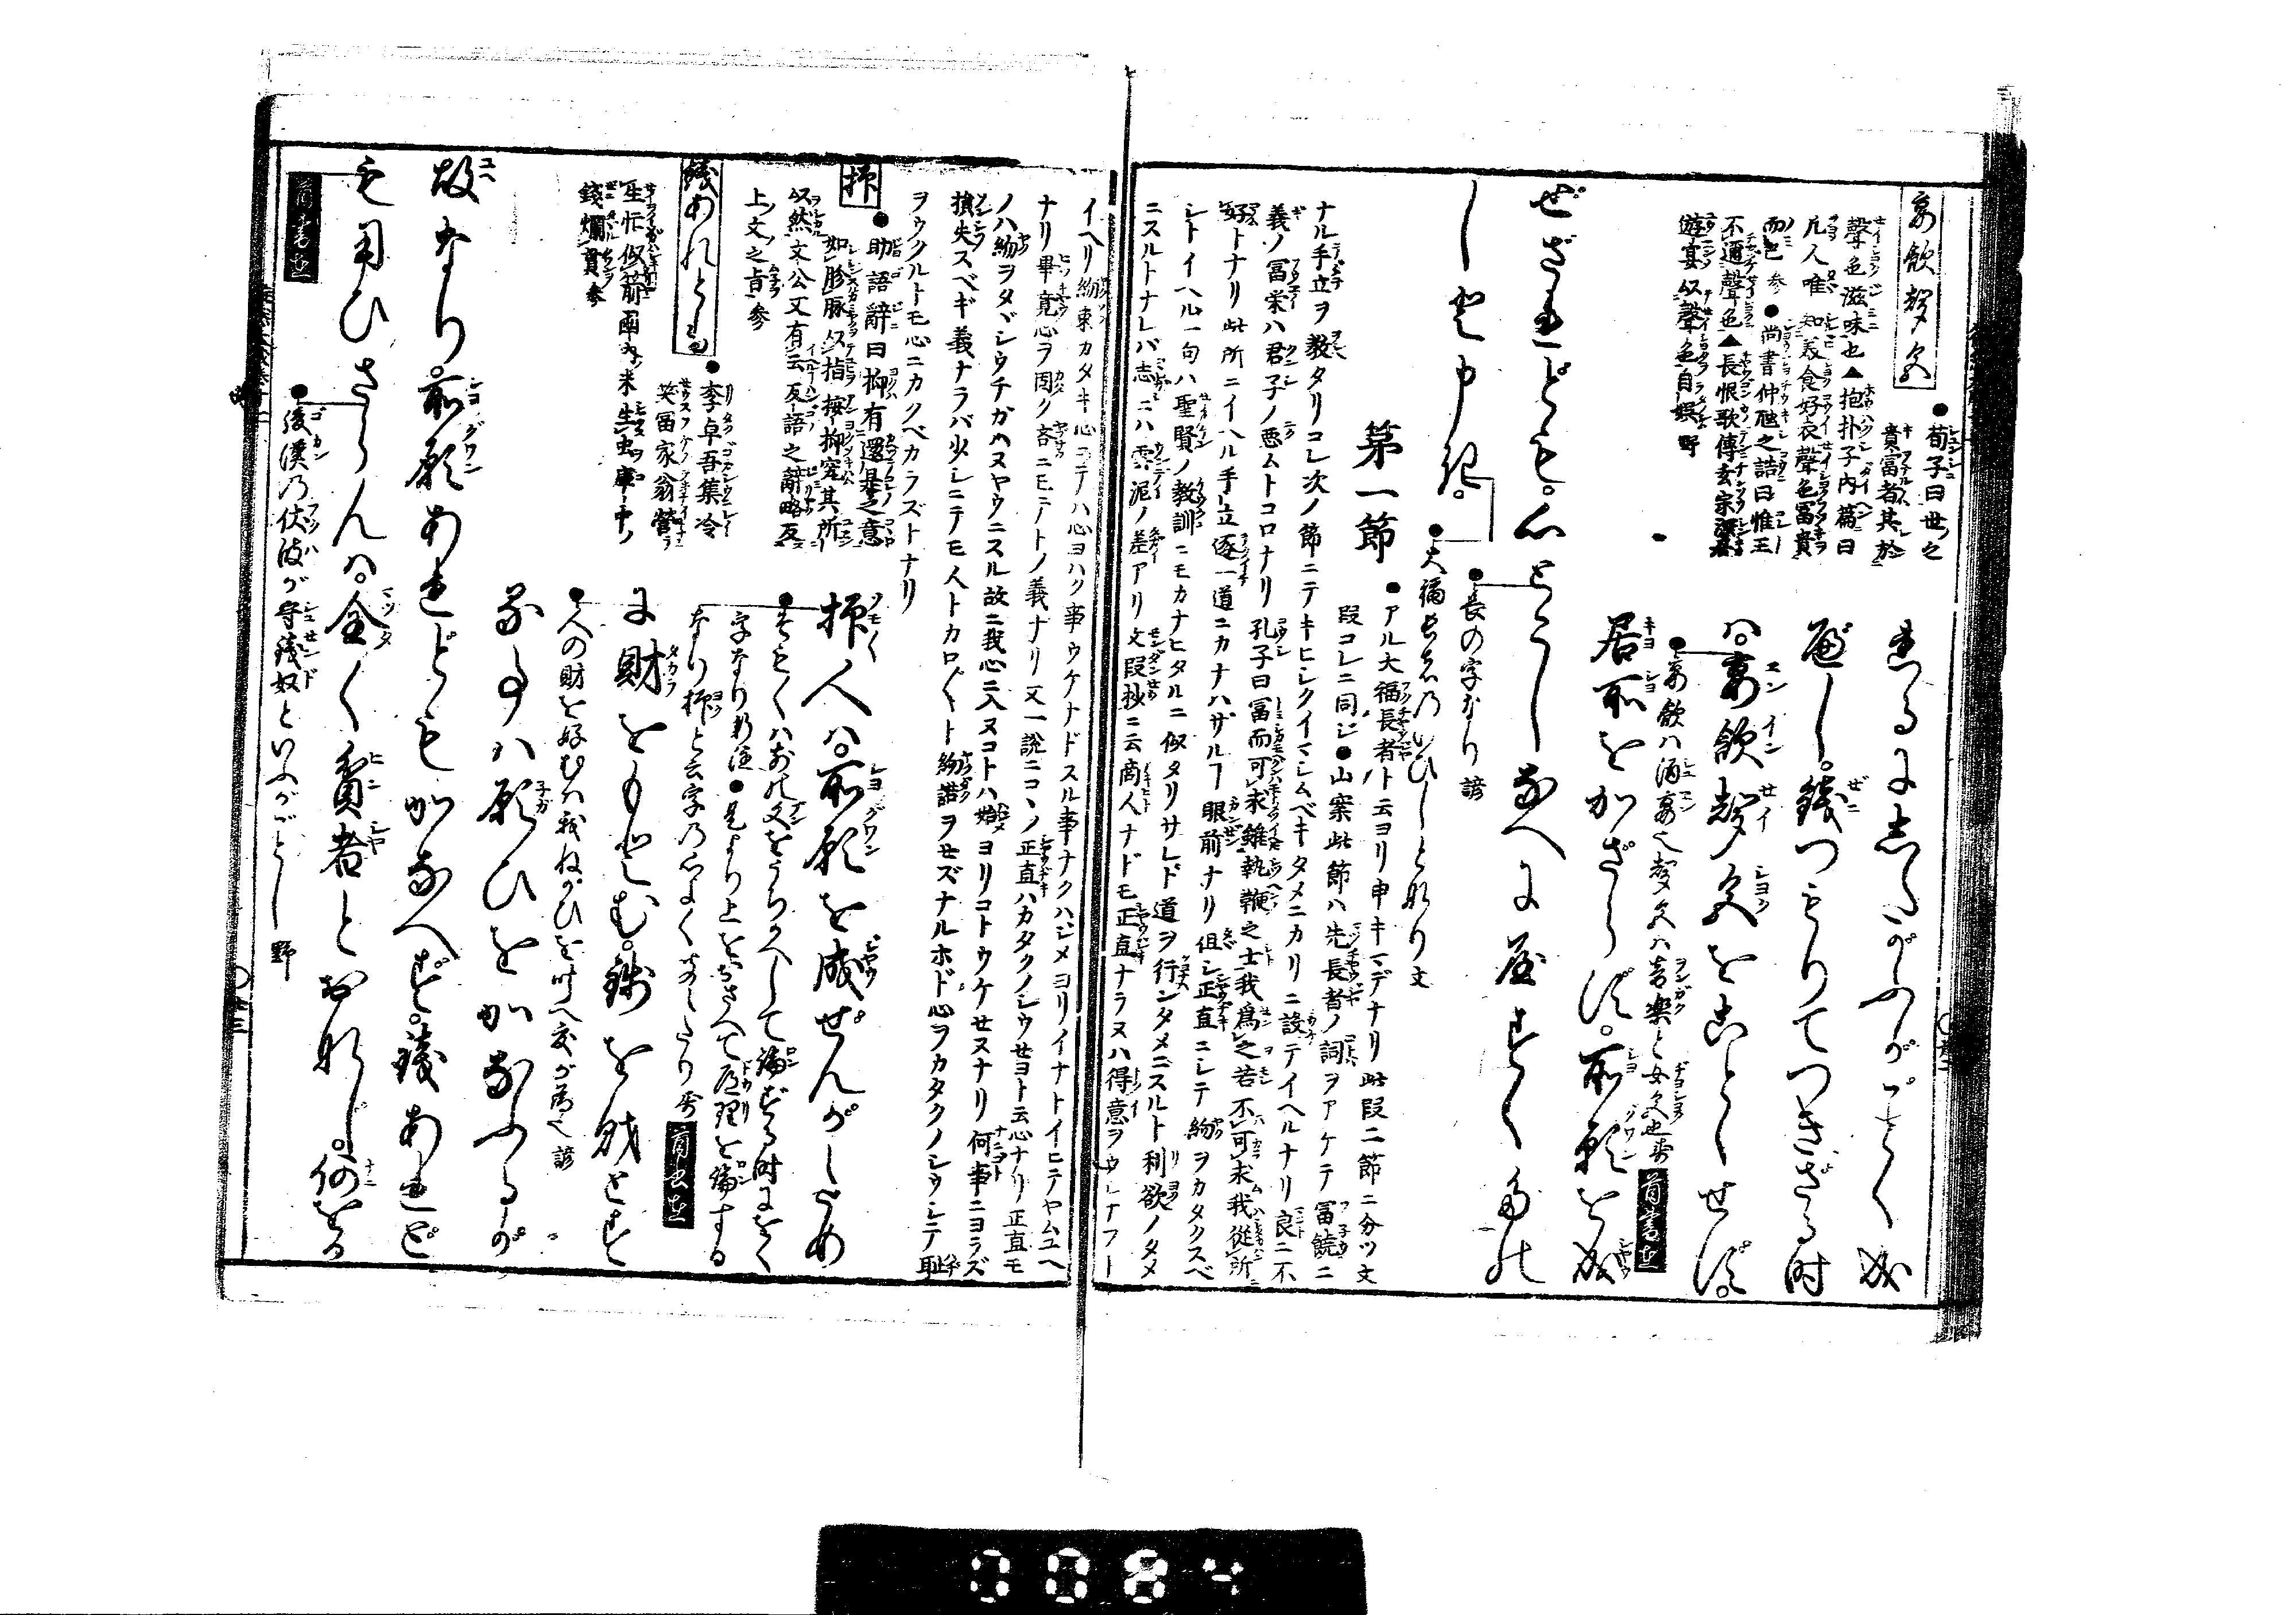 宴飲聲色
●荀子曰世之
貴富者其於
聲色滋味也▲抱朴子内篇曰
凡人唯知美食好衣聲色富貴
而已 参 ●尚書仲虺之誥曰惟王
不邇聲色▲長恨歌傳玄宗深居
遊宴以聲色自娯 野
火のかわけるにつき水のくだれるにしたがふがごとく成
べし。錢つもりてつきざる時
ハ。宴飲聲色をことゝせず。
●宴飲ハ酒宴也聲色ハ音楽と女色也 首書在
居所をかざらず。所願を成
ぜざれども。心とこしなへに安く楽
しと申き。
●長の字なり 諺
●大福長者のいひしと也 文
第一節
●アル大福長者ト云ヨリ申キマデナリ此段二節ニ分ツ文
段コレニ同ジ●山案此節ハ先長者ノ詞ヲアケテ冨饒ニ
ナル手立ヲ教タリコレ次ノ節ニテキヒシクイマシムベキタメニカリニ設テイヘルナリ良ニ不
義ノ冨栄ハ君子ノ悪ムトコロナリ孔子曰冨而可求雖執鞭之士我為之若不可求我從所
好トナリ此所ニイヘル手立逐一道ニカナハザルヿ眼前ナリ但シ正直ニシテ約ヲカタクスベ
シトイヘル一句ハ聖賢ノ教訓ニモカナヒタルニ似タリサレド道ヲ行ンタメニスルト利欲ノタメ
ニスルトナレバ志ニハ雲泥ノ差アリ文段抄ニ云商人ナドモ正直ナラヌハ得意ヲウシナフト
イヘリ約束カタキ心ニテハ心ヨハク事ウケナドスル事ナクハジメヨリイナトイヒテヤムユヘ
ナリ畢竟心ヲ固ク吝ニモテトノ義ナリ又一説ニコヽノ正直ハカタクノシウセヨト云心ナリ正直モ
ノハ約ヲタガシウチガヘヌヤウニスル故ニ我心ニ入ヌコトハ始ヨリコトウケセヌナリ何事ニヨラズ
損失スベキ義ナラバ少シニテモ人トカロ〴〵ト約諾ヲセズナルホド心ヲカタクノシウシテ耻
ヲウクルトモ心ニカクベカラズトナリ
抑
●助語辭曰抑有還是之意
如胗脉以指按抑究其所
以然文公又有云反語之辭略反
上文之旨 参
抑人ハ。所願を成ぜんがため
●そも〳〵ハ前の文をうちかへして論ずる時にをく
字なり 新注 ●是より上をおさへて道理を論する
なり抑と云字の心よくあたりたり 寿 首書在
錢あれとも
●李卓吾集冷
笑冨家翁營
生忙似箭囷内米生虫庫中
錢爛貫 参
に財をもとむ。錢を財とす
●人の財を好むハ我ねがひを叶へ度が為也 諺
る事ハ願ひをかなふるが
故なり。所願あれどもかなへず。錢あれど
も用ひざらんハ。全く貧者とおなじ。何をか
首書在
●後漢の伏波が守錢奴といふがごとし 野
0084